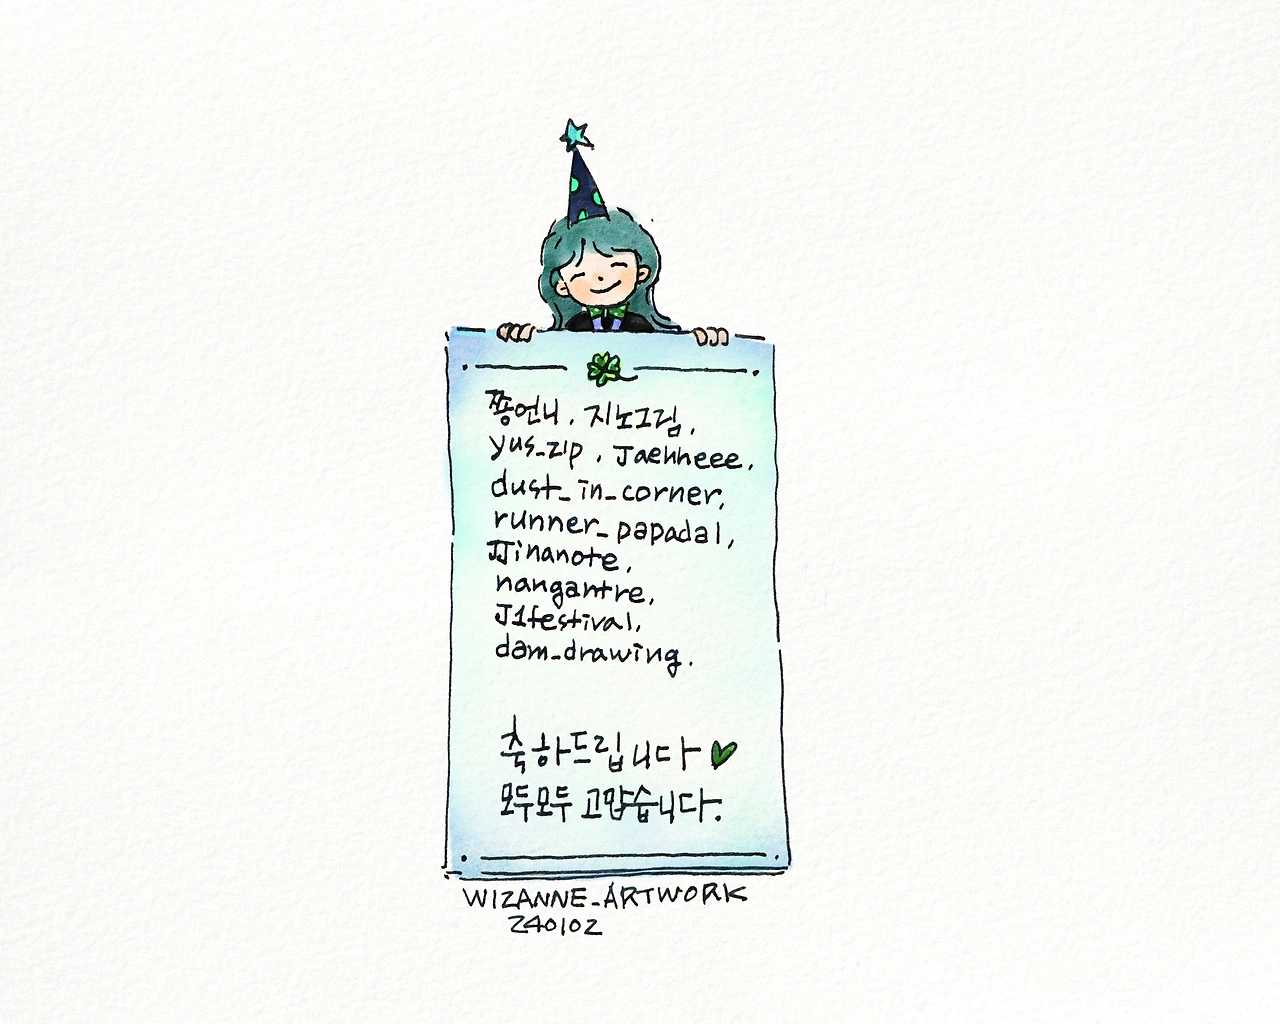 쫑언니, 지노그림,
yus_zip, Jaehheee,
dust_in_corner,
runner_papadal,
JJinanote,
nangantre,
J1festival,
dam_drawing.
축하드립니다
모두모두 고맙습니다.
WIZANNE_ARTWORK
240102